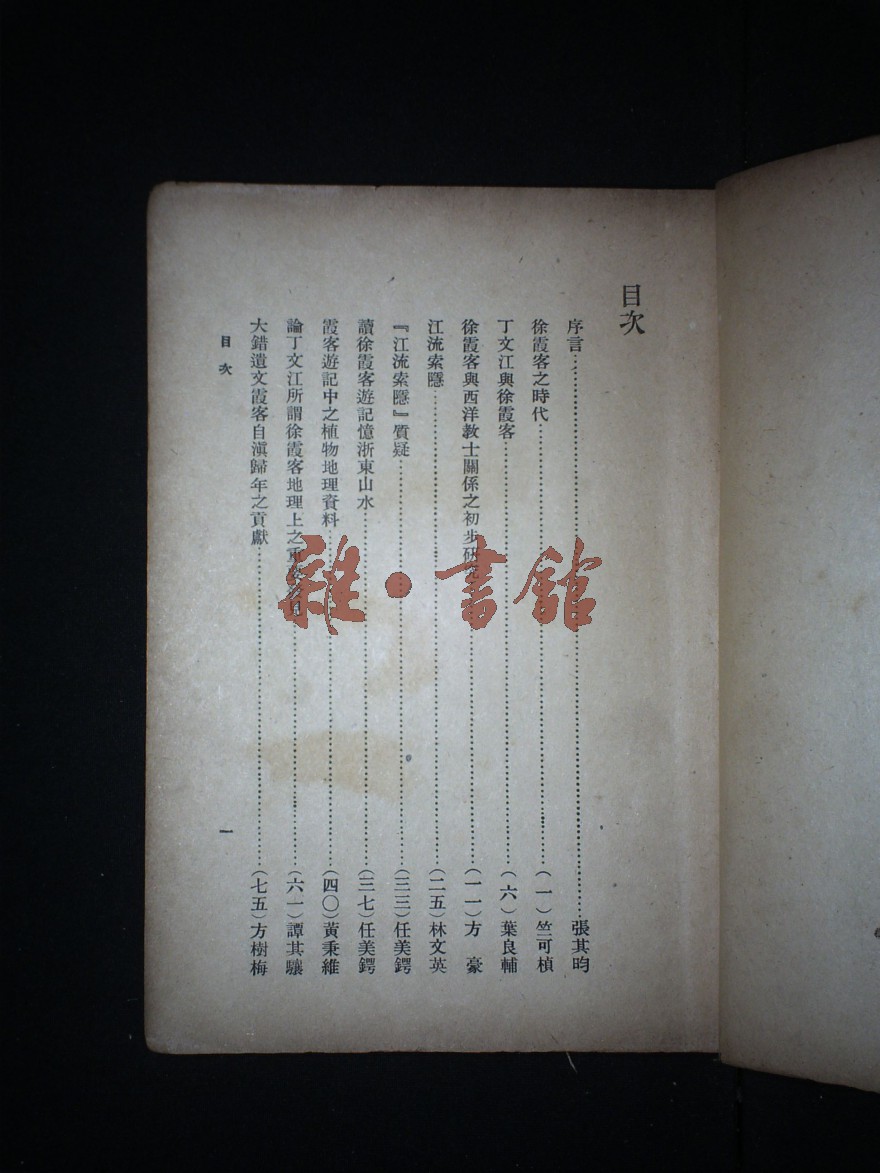 目次
序言……張其昀
徐霞客之時代……(一)竺可楨
丁文江與徐霞客……(六)葉良輔
徐霞客與西洋教士關係之初步研……(一一)方 豪
江流索隱……(二五)林文英
『江流索隱』質疑……(三三)任美鍔
讀徐霞客遊記憶浙東山水……(三七)任美鍔
霞客遊記中之植物地理資料……(四〇)黃秉維
論丁文江所謂徐霞客地理上之……(六一)譚其驤
大錯遺文霞客自滇歸年之貢獻……(七五)方樹梅
目次
一
雜·書館